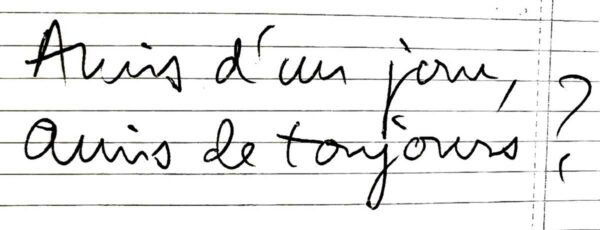 Amis d'un jour,
amis de toujours ?